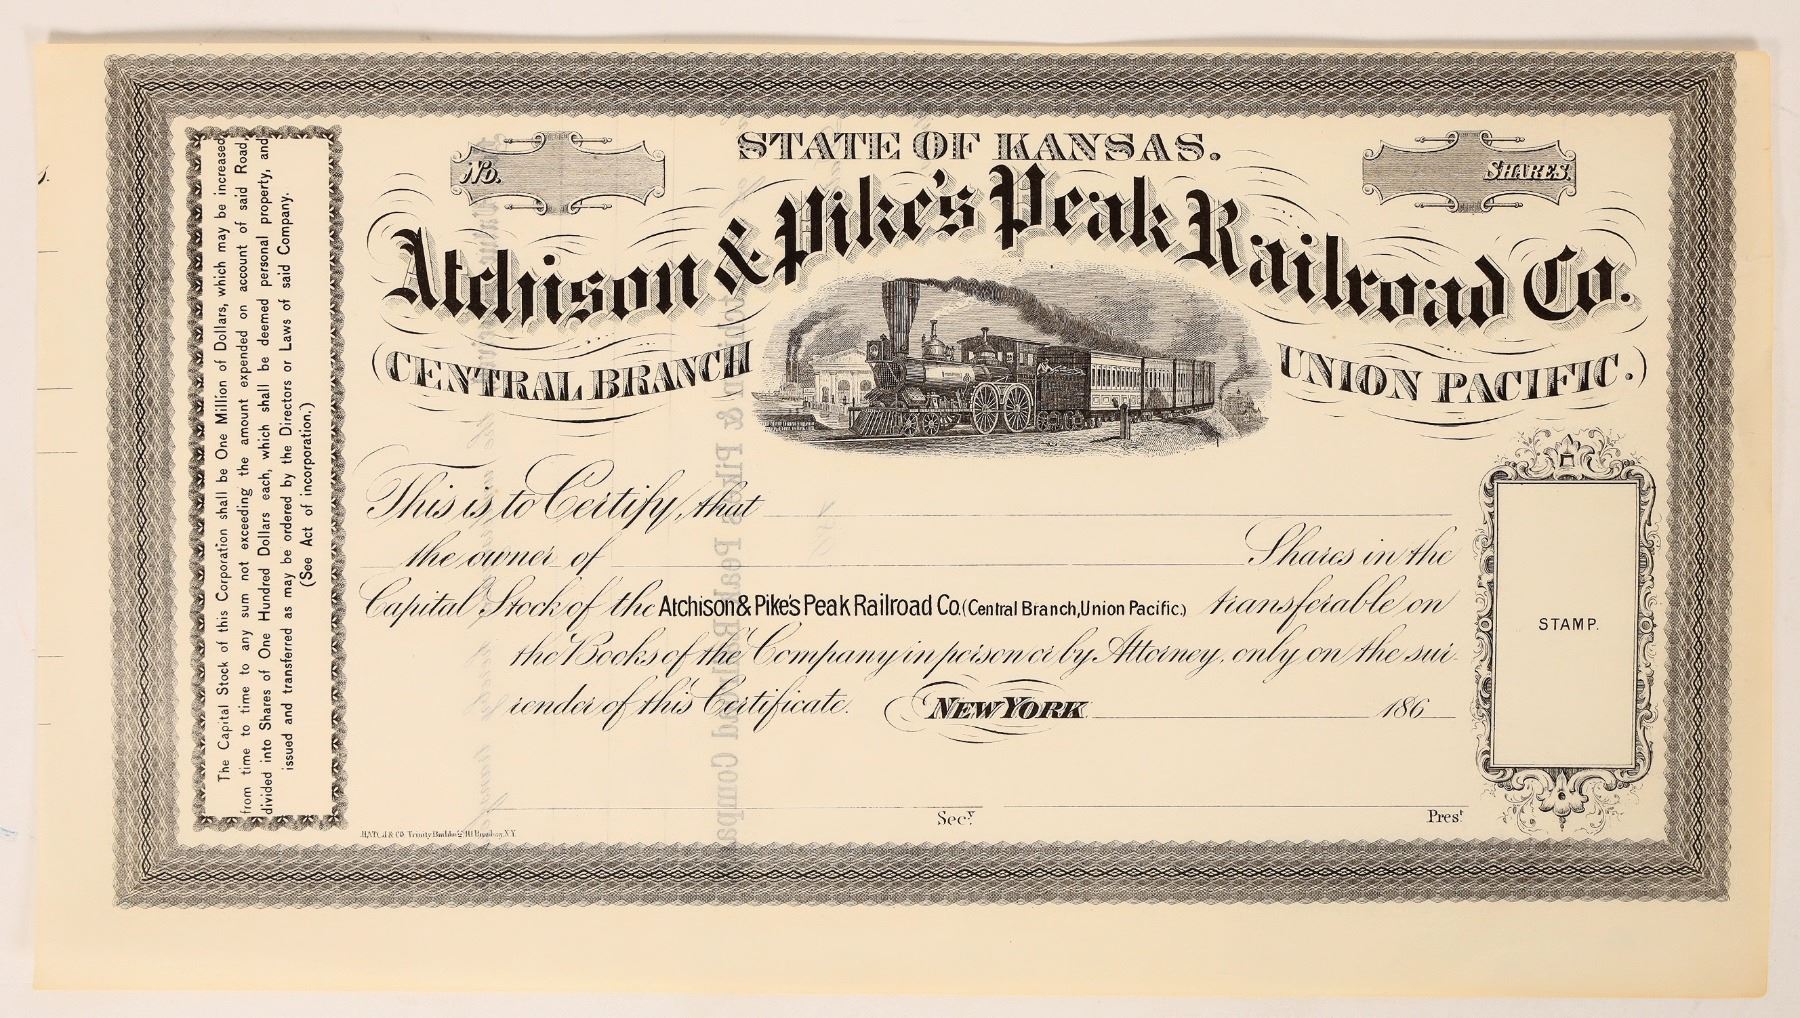 STATE OF KANSAS.
No.
SHARES.
Atchison & Pike's Peak Railroad Co.
(CENTRAL BRANCH UNION PACIFIC.)
The Capital Stock of this Corporation shall be One Million of Dollars, which may be increased
from time to time to any sum not exceeding the amount expended on account of said Road,
divided into Shares of One Hundred Dollars each, which shall be deemed personal property, and
issued and transferred as may be ordered by the Directors or Laws of said Company.
(See Act of incorporation.)
This is to Certify, that
the owner of Shares in the
Capital Stock of the Atchison & Pike's Peak Railroad Co. (Central Branch, Union Pacific.) transferable on
the Books of the Company in person or by Attorney, only on the sur-
render of this Certificate. NEW YORK 186
STAMP.
Secy
Prest
HATCH & CO. Trinity Building 111 Broadway, N.Y.